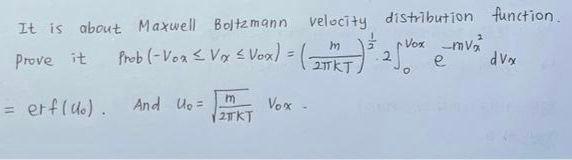 It is about Maxwell Boltzmann velocity distribution function.
Prove it Prob (-Vox ≤ Vx ≤ Vox) = (m/2πKT)^(1/2) · 2 ∫₀^Vox e^(-mVx²) dVx
= erf(U₀). And U₀ = √(m/2πKT) Vox.